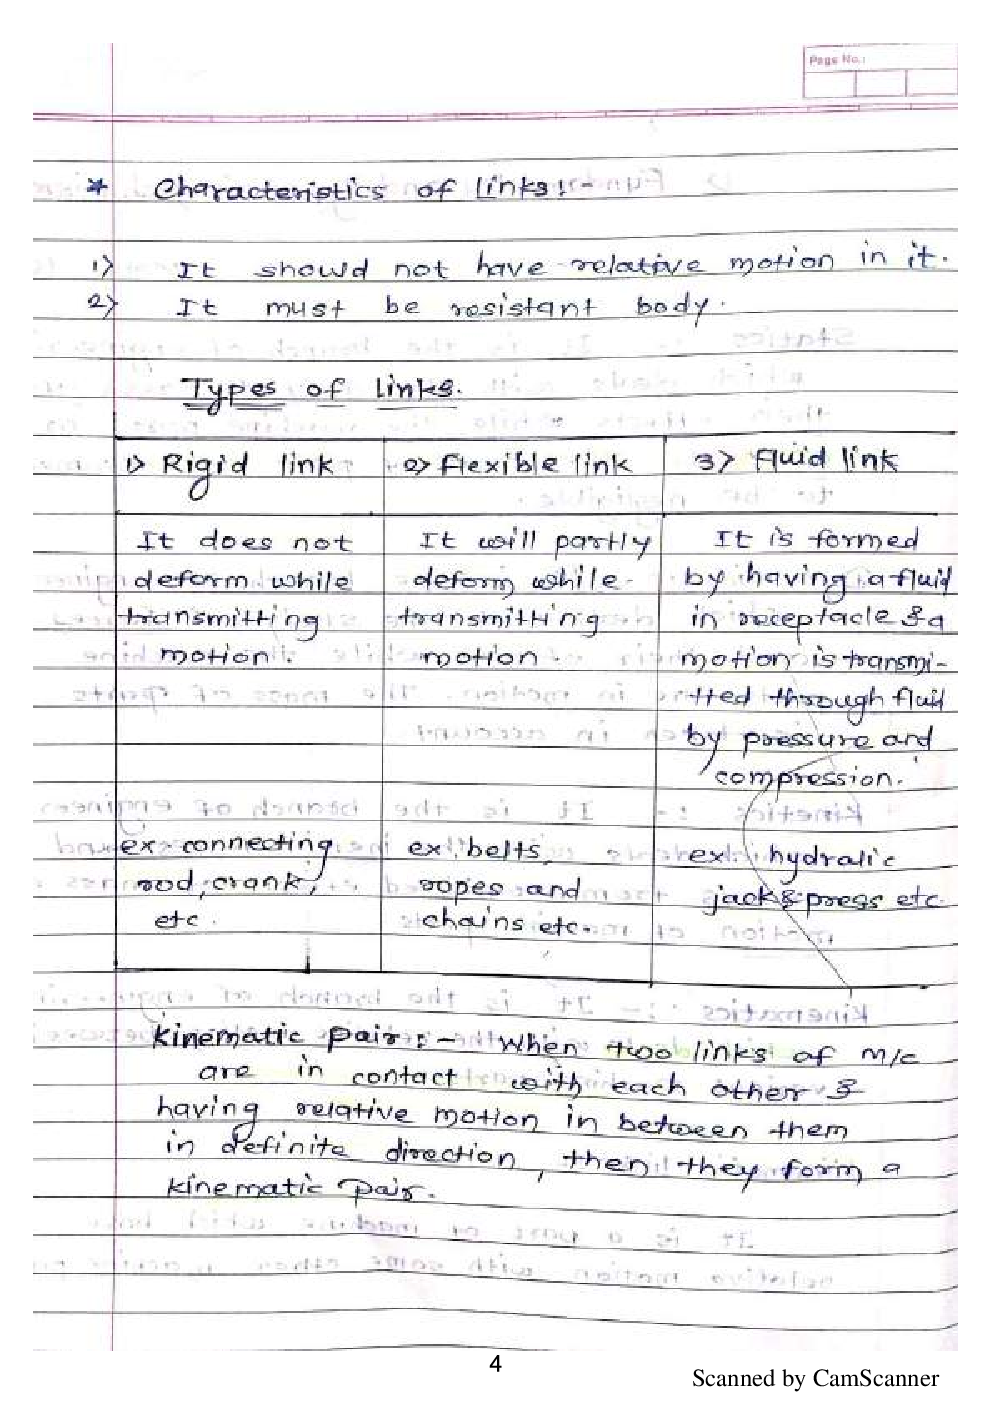 Page No.:
* Characteristics of links:-
1) It should not have relative motion in it.
2) It must be resistant body.
Types of links.
1) Rigid link
It does not
deform while
transmitting
motion.
ex. connecting
rod, crank,
etc.
2) flexible link
It will partly
deform while
transmitting
motion.
ex. belts,
ropes and
chains etc.
3) fluid link
It is formed
by having a fluid
in receptacle & a
motion is transmi-
tted through fluid
by pressure and
compression.
ex. hydralic
jack & press etc.
Kinematic pair :- When two links of m/c
are in contact with each other &
having relative motion in between them
in definite direction, then they form a
kinematic pair.
4
Scanned by CamScanner